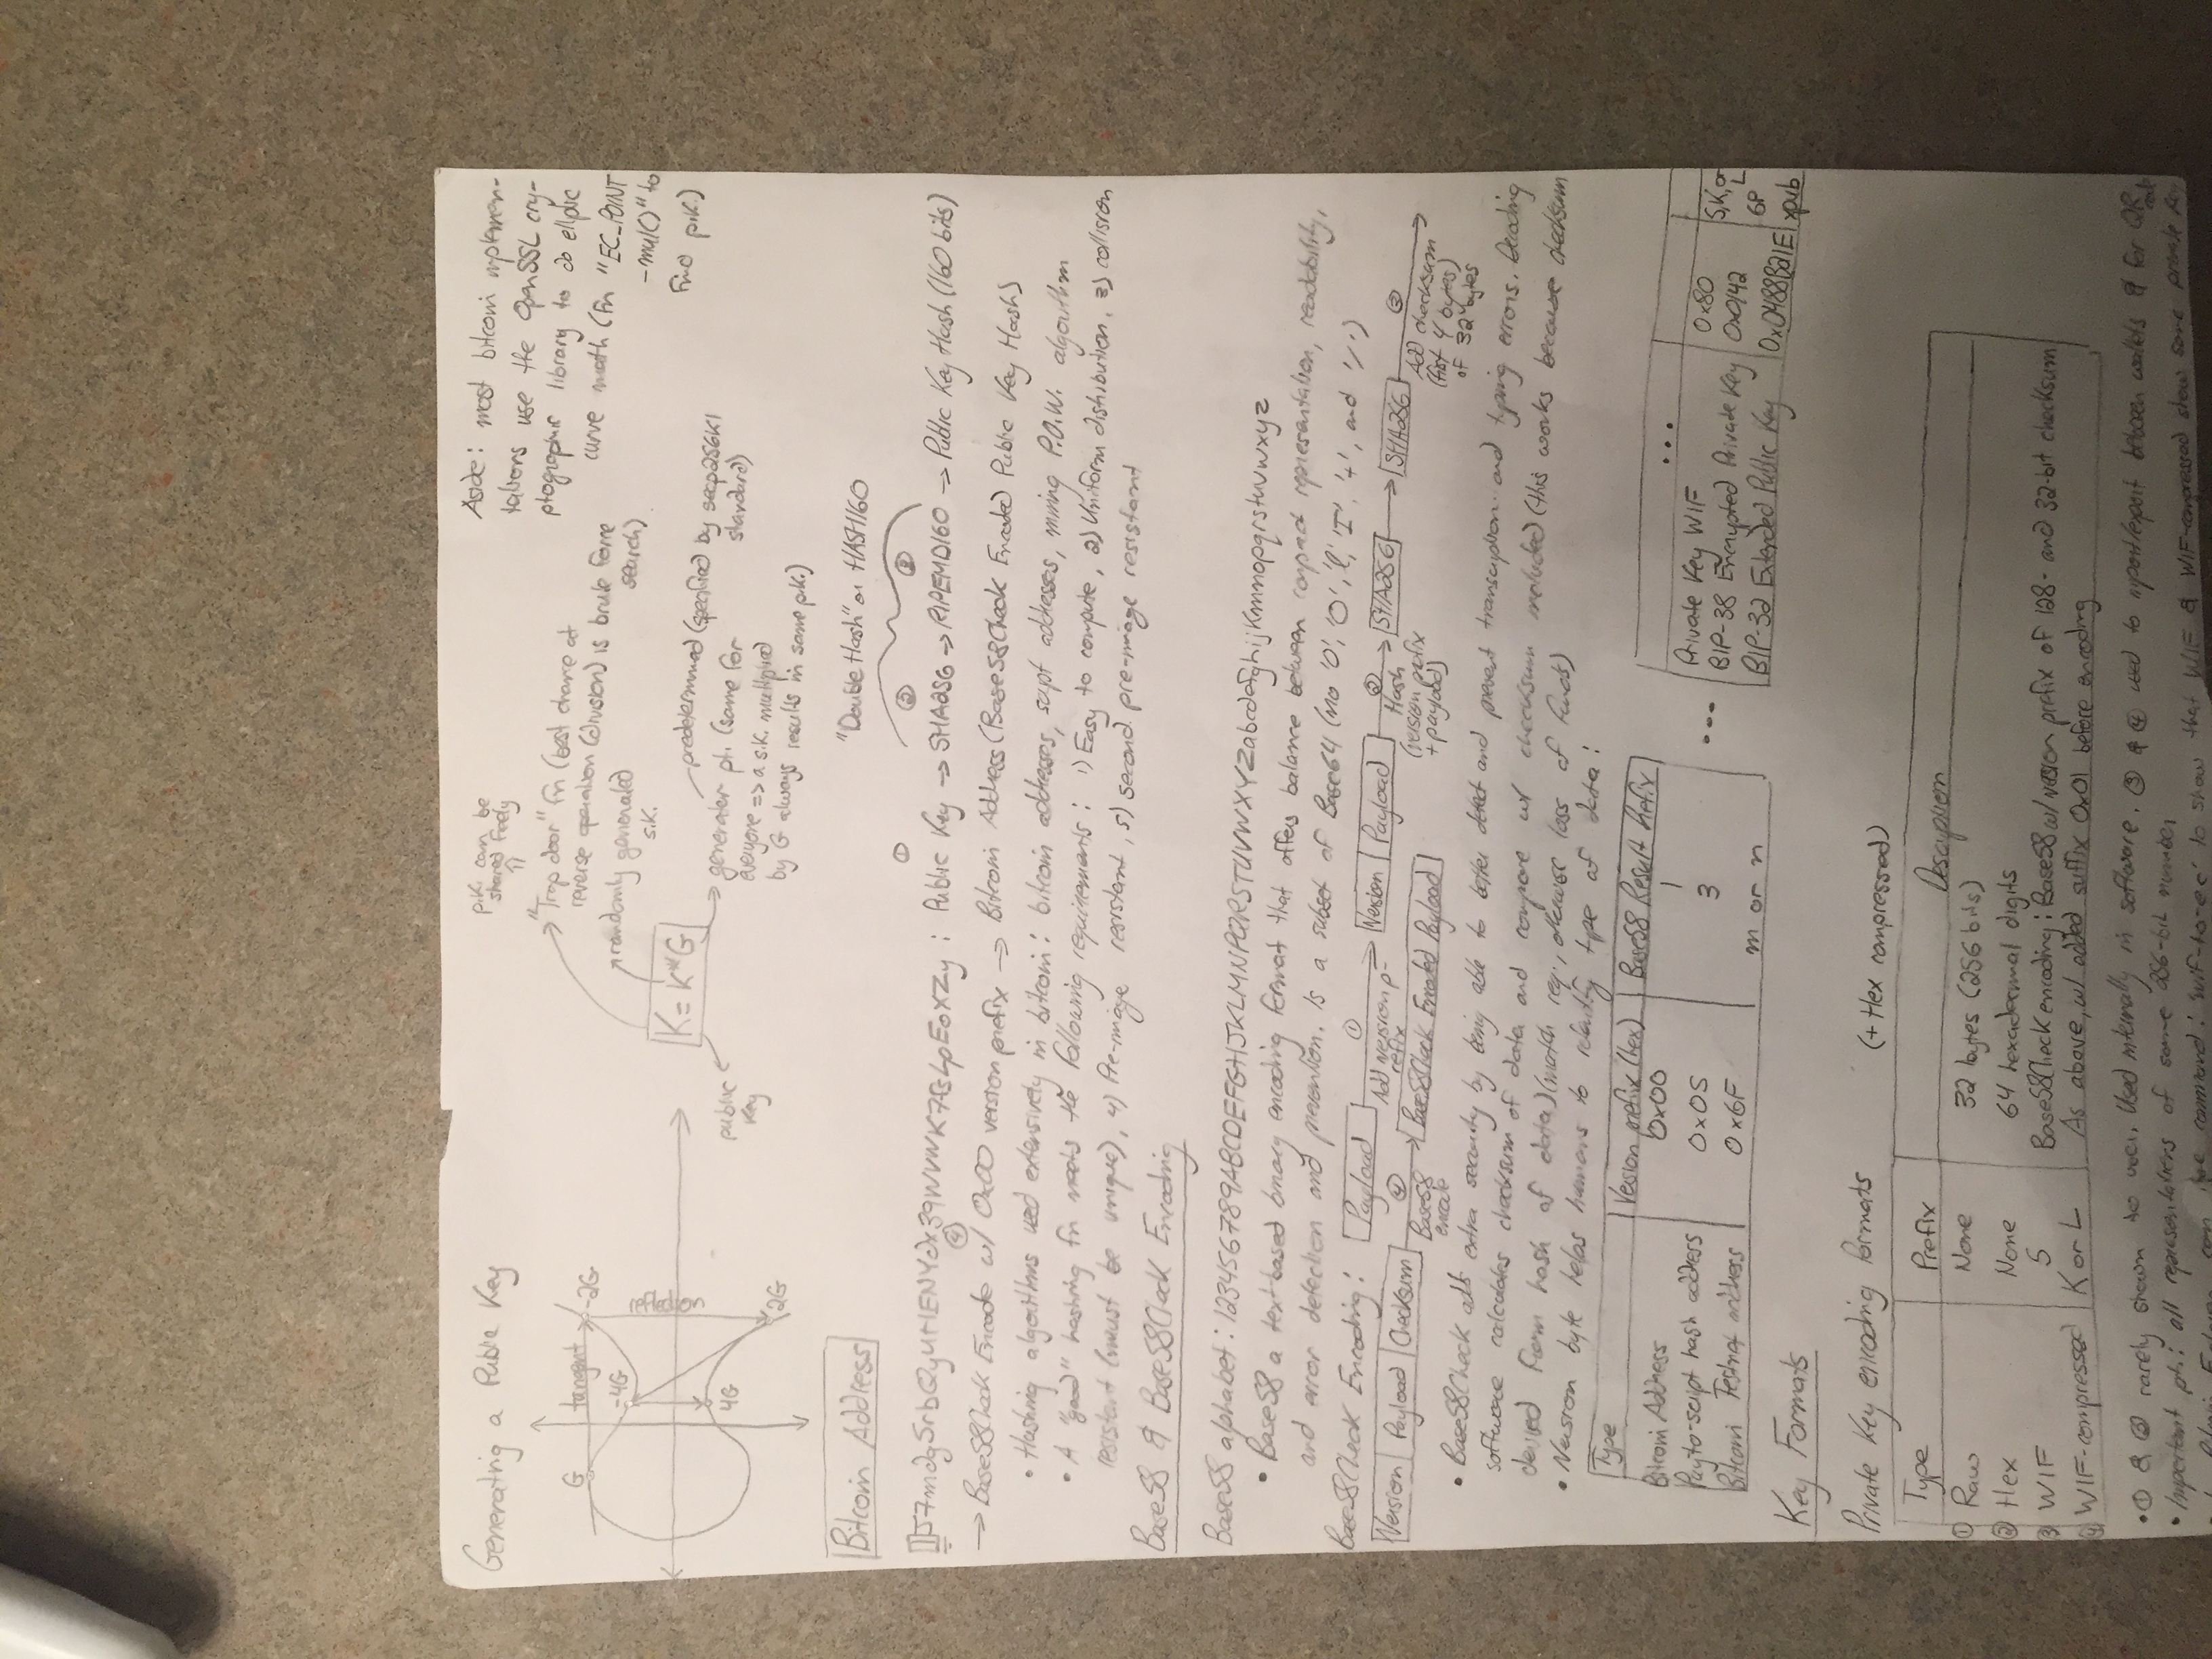 Generating a Public Key
G
tangent
-2G
-4G
4G
2G
p.k. can be
shared freely
"Trap door" fn (best chance at
reverse operation (division) is brute force
search)
randomly generated
s.k.
K = k*G
public
key
generator pt. (same for
everyone => a s.k. multiplied
by G always results in same p.k.)
predetermined (specified by secp256k1
standard)
Aside: most bitcoin implemen-
tations use the OpenSSL cry-
ptographic library to do elliptic
curve math (fn "EC_POINT
-mul()" to
find p.k.)
Bitcoin Address
"Double Hash" or HASH160
: Public Key → SHA256 → RIPEMD160 → Public Key Hash (160 bits)
① ② ③
④
→ Base58Check Encode w/ 0x00 version prefix → Bitcoin Address (Base58Check Encoded Public Key Hash)
• Hashing algorithms used extensively in bitcoin: bitcoin addresses, script addresses, mining P.O.W. algorithm
• A "good" hashing fn meets the following requirements: 1) Easy to compute, 2) Uniform distribution, 3) collision
resistant (must be unique), 4) Pre-image resistant, 5) second pre-image resistant
Base58 & Base58Check Encoding
Base58 alphabet: 123456789ABCDEFGHJKLMNPQRSTUVWXYZabcdefghijkmnopqrstuvwxyz
• Base58 a text-based binary encoding format that offers balance between compact representation, readability,
and error detection and prevention. Is a subset of Base64 (no '0', 'O', 'l', 'I', '+', and '/')
Base58Check Encoding:
Payload
① Add version p-
refix
Version | Payload
② Hash
(version prefix
+ payload)
SHA256 → SHA256
③ Add checksum
(first 4 bytes
of 32 bytes)
Version | Payload | Checksum
④ Base58
encode
Base58Check Encoded Payload
• Base58Check adds extra security by being able to better detect and prevent transcription and typing errors. Decoding
software calculates checksum of data and compare w/ checksum included (this works because checksum
derived from hash of data) (match req., otherwise loss of funds)
• Version byte helps humans to relating type of data:
Type | Version prefix (hex) | Base58 Result Prefix
Bitcoin Address | 0x00 | 1
Pay-to-script hash address | 0x05 | 3
Bitcoin Testnet address | 0x6F | m or n
...
...
Private Key WIF | 0x80 | 5, K, or L
BIP-38 Encrypted Private Key | 0x0142 | 6P
BIP-32 Extended Public Key | 0x0488B21E | xpub
Key Formats
Private key encoding formats (+ Hex compressed)
Type | Prefix | Description
① Raw | None | 32 bytes (256 bits)
② Hex | None | 64 hexadecimal digits
③ WIF | 5 | Base58Check encoding: Base58 w/ version prefix of 128- and 32-bit checksum
④ WIF-compressed | K or L | As above, w/ added suffix 0x01 before encoding
• ① & ② rarely shown to user. Used internally in software. ③ & ④ used to import/export between wallets & for QR
• Important pt.: all representations of same 256-bit number